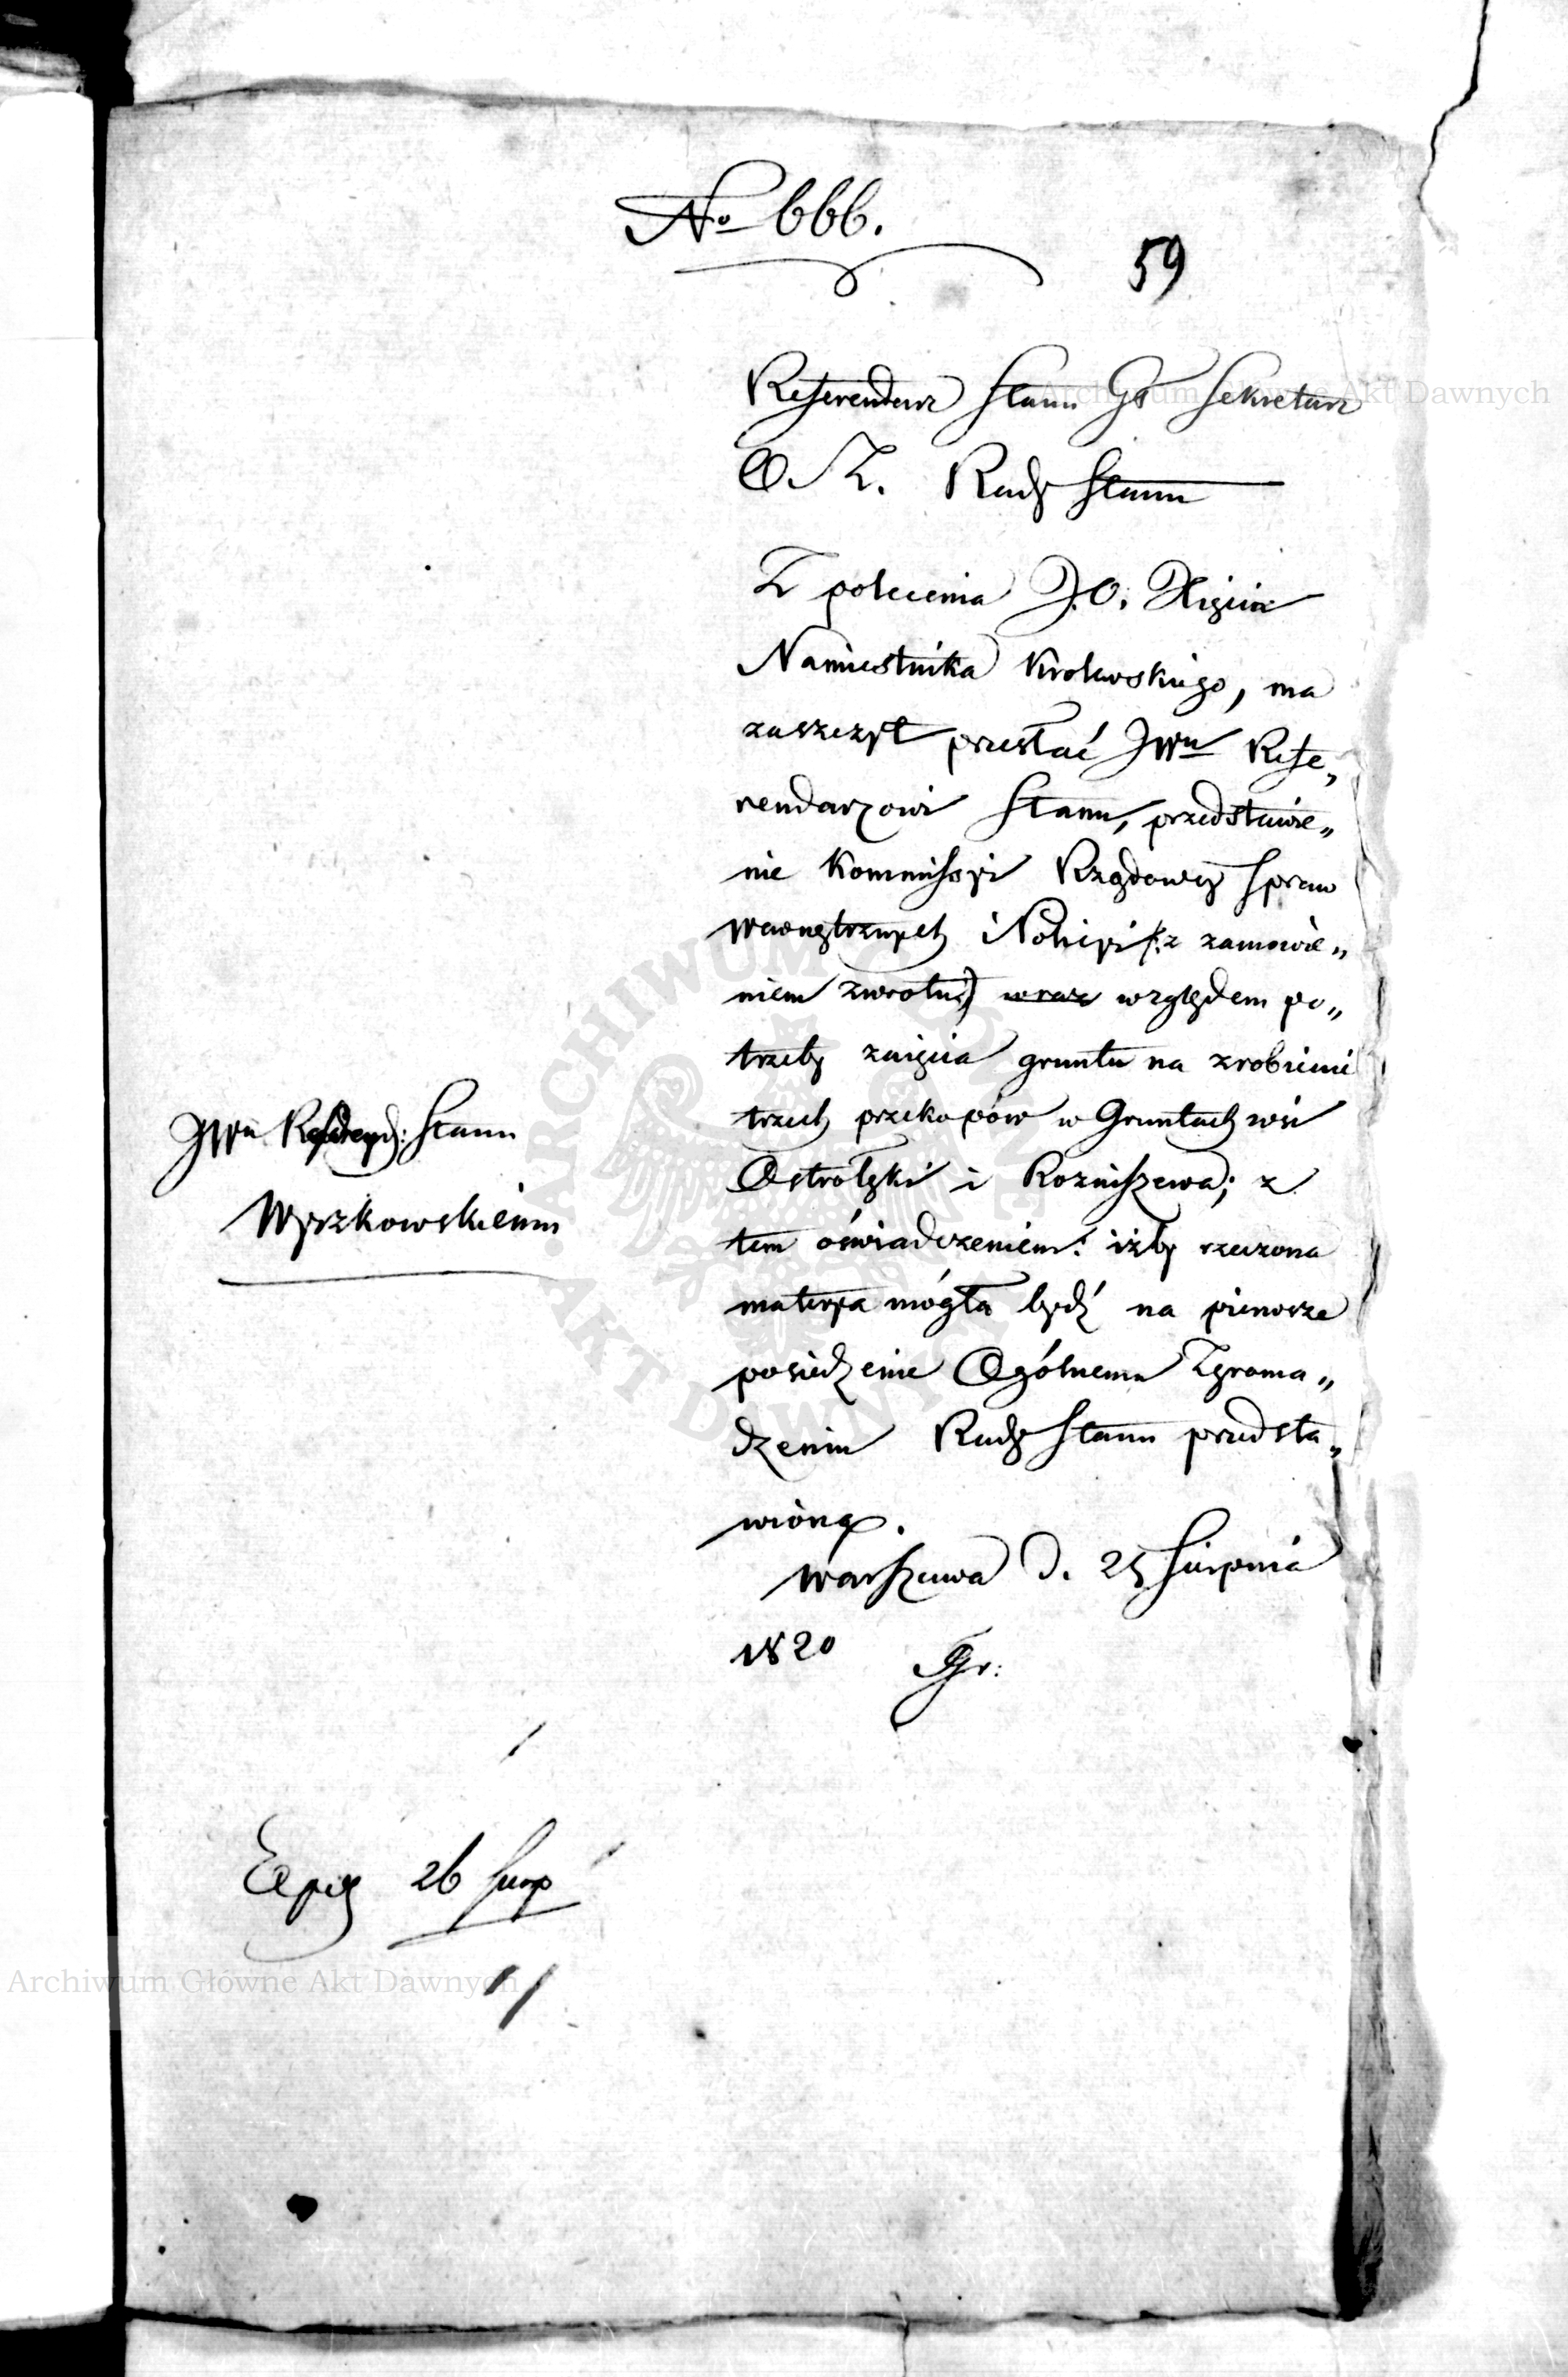 No 666.
59
Referendarz Stanu Gł Sekretarz
O. Z. Rady Stanu
Z polecenia J.O. Xięcia
Namiestnika Krolewskiego, ma
zaszczyt przesłać JWu Refe„
rendarzowi Stanu, przedstawie„
nie Kommissyi Rządowey Spraw
Wewnętrznych i Policyi /:z zamowie„
niem zwrotu:/ wraz względem po„
trzeby zaięcia gruntu na zrobienie
trzech przekopów w Gruntach wsi
Ostrołęki i Rozniszewa; z
tem oświadczeniem: iżby rzeczona
materya mógła bydź na pierwsze
posiedzenie Ogólnemu Zgroma„
dzeniu Rady Stanu przedsta„
wioną.
Warszawa d. 25 Sierpnia
1820 Gr:
JWu Referend: Stanu
Wyszkowskiemu
Exped 26 Sierp
Archiwum Główne Akt Dawnych
Archiwum Główne Akt Dawnych
ARCHIWUM GŁÓWNE AKT DAWNYCH